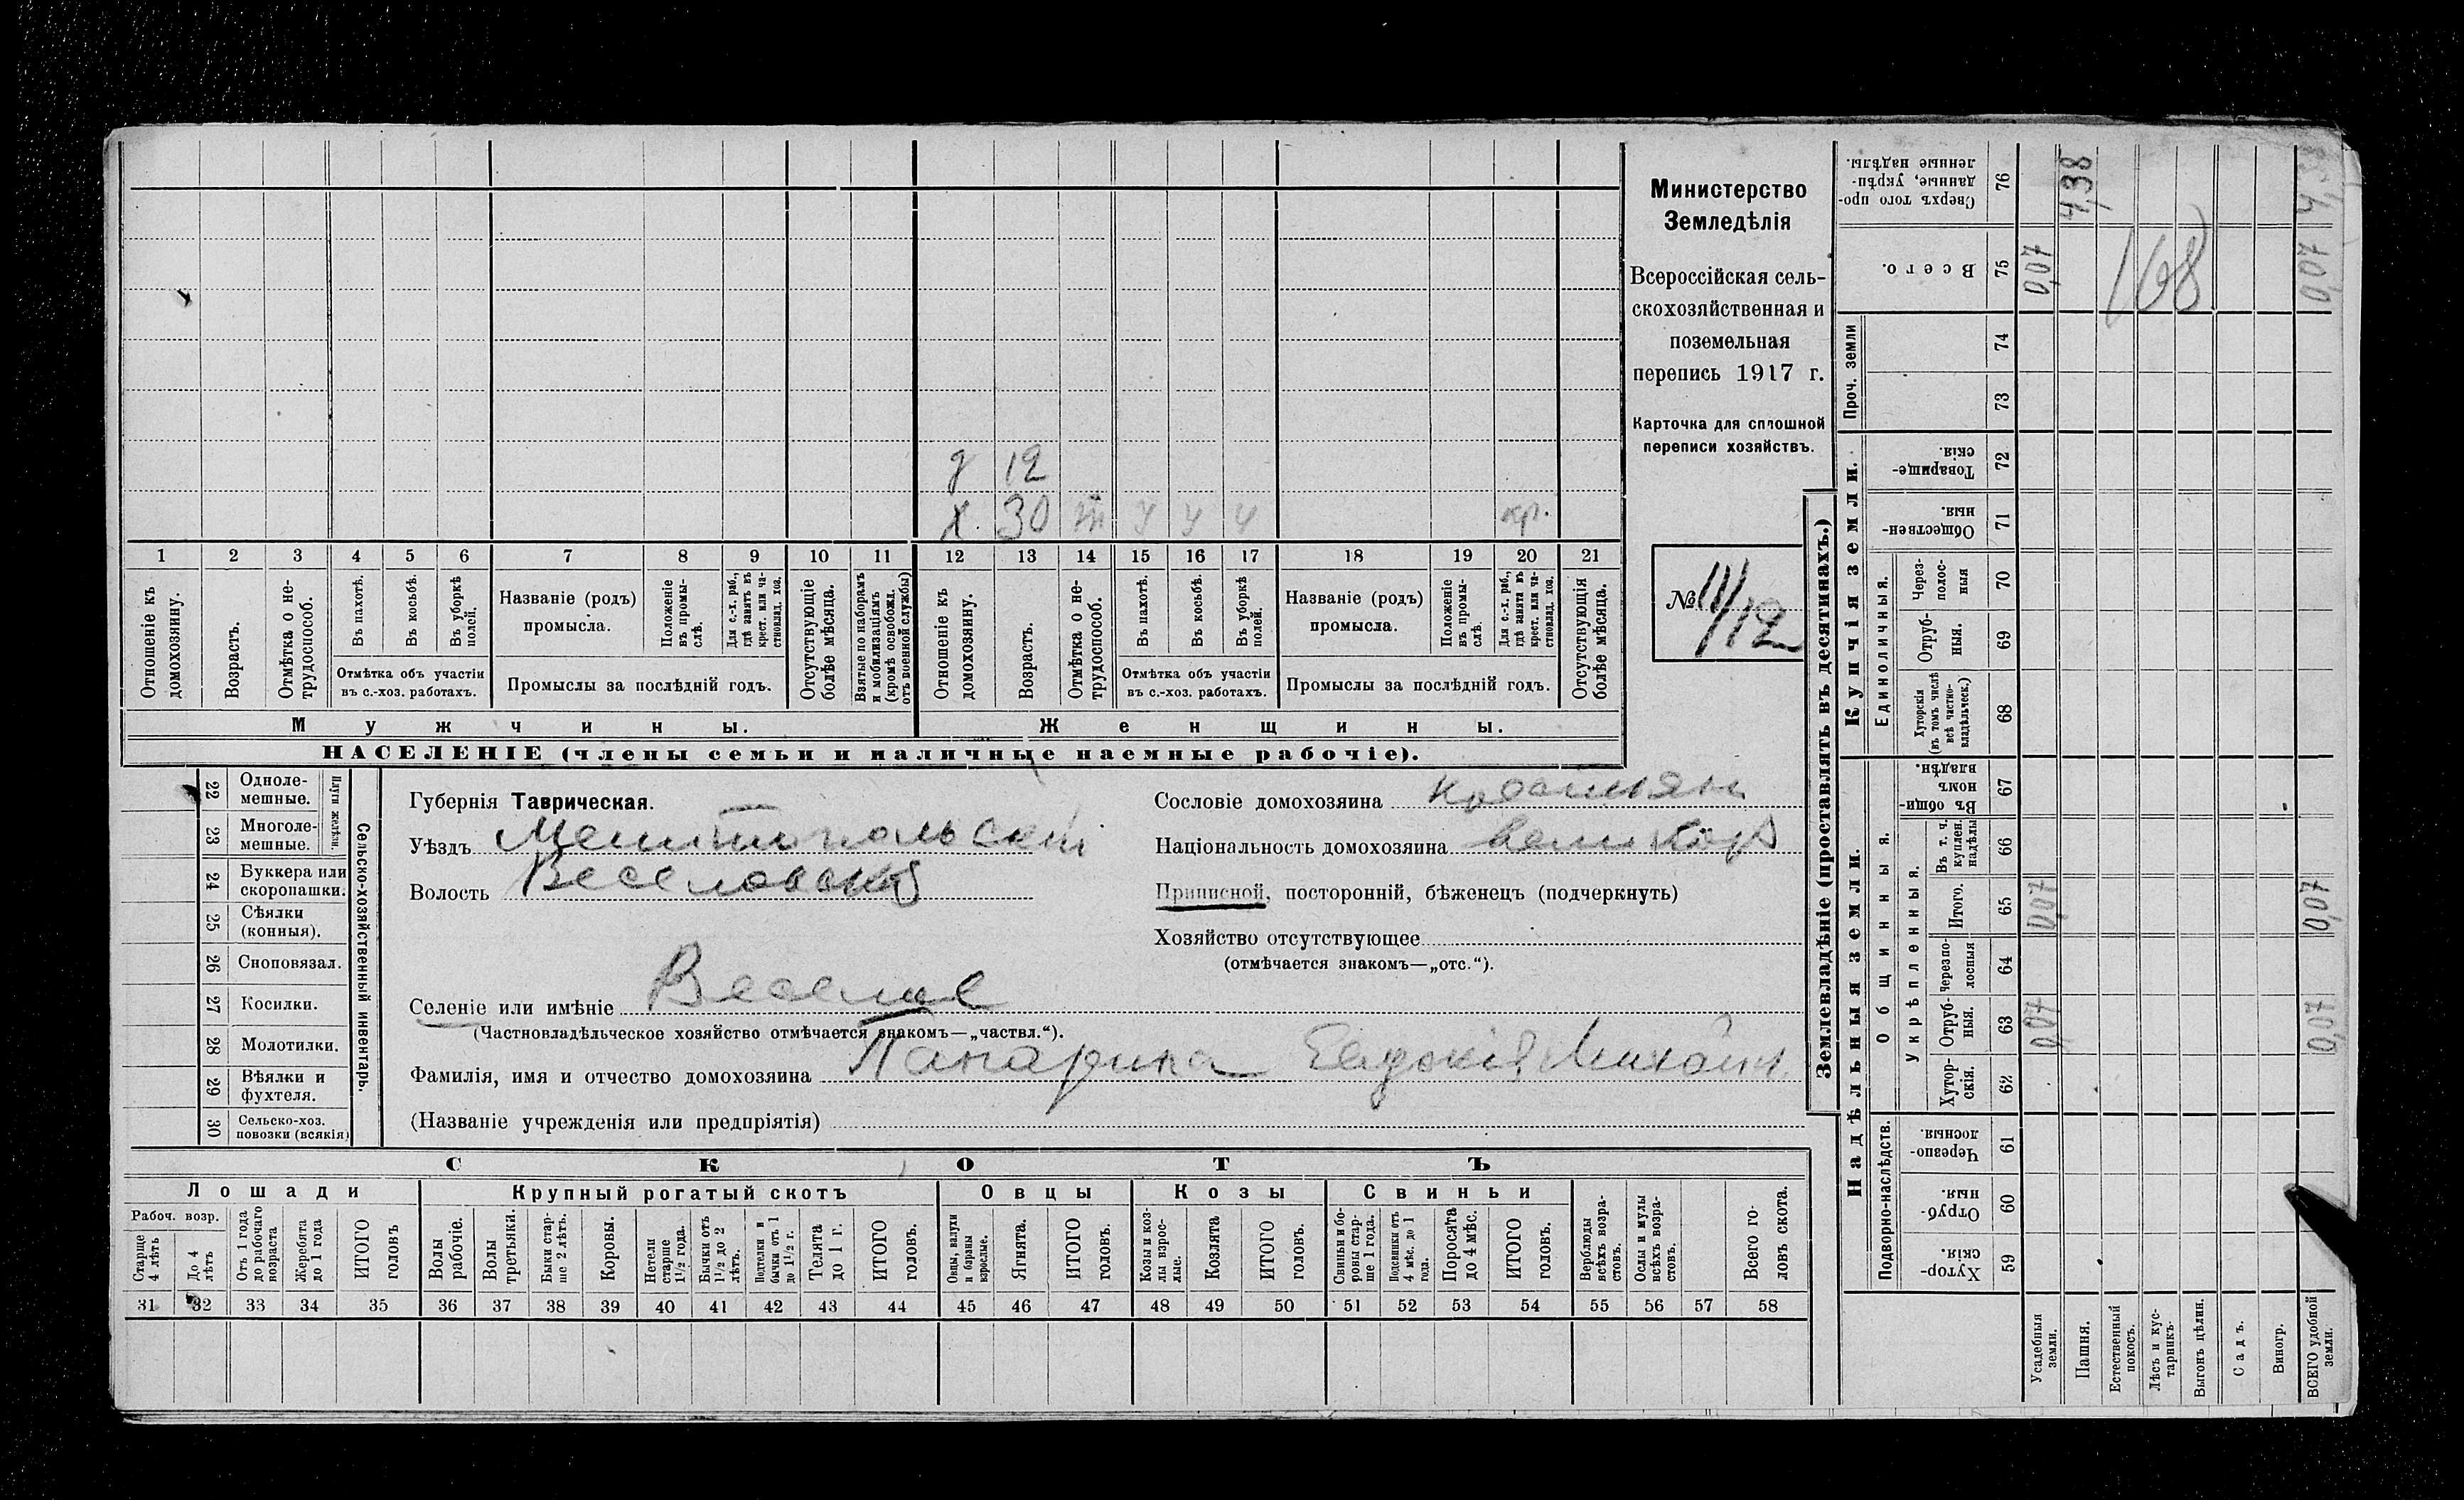 д 12
х. 30 т ч ч ч кр.
1 2 3 4 5 6 7 8 9 10 11 12 13 14 15 16 17 18 19 20 21
Отношеніе къ домохозяину.
Возрастъ.
Отмѣтка о не-
трудоспособ.
Въ пахотѣ.
Въ косьбѣ.
Въ уборкѣ
полей.
Отмѣтка объ участіи
въ с.-хоз. работахъ.
Названіе (родъ)
промысла.
Положеніе
въ промы-
слѣ.
Для с.-х. раб.,
гдѣ занятъ въ
крест. или ча-
стновлад. хоз.
Промыслы за послѣдній годъ.
Отсутствующіе
болѣе мѣсяца.
Взятые по наборамъ
и мобилизаціямъ
(кромѣ освобожд.
отъ военной службы)
Отношеніе къ
домохозяину.
Возрастъ.
Отмѣтка о не-
трудоспособ.
Въ пахотѣ.
Въ косьбѣ.
Въ уборкѣ
полей.
Отмѣтка объ участіи
въ с.-хоз. работахъ.
Названіе (родъ)
промысла.
Положеніе
въ промы-
слѣ.
Для с.-х. раб.,
гдѣ занята въ
крест. или ча-
стновлад. хоз.
Промыслы за послѣдній годъ.
Отсутствующія
болѣе мѣсяца.
Мужчины.
Женщины.
НАСЕЛЕНІЕ (члены семьи и наличные наемные рабочіе).
Министерство
Земледѣлія
Всероссійская сель-
скохозяйственная и
поземельная
перепись 1917 г.
Карточка для сплошной
переписи хозяйствъ.
№ III/12
22 Одноле-
мешные.
23 Многоле-
мешные.
Плуги желѣзн.
24 Буккера или
скоропашки.
25 Сѣялки
(конныя).
26 Сноповязал.
27 Косилки.
28 Молотилки.
29 Вѣялки и
фухтеля.
30 Сельско-хоз.
повозки (всякія)
Сельско-хозяйственный инвентарь.
Губернія Таврическая.
Уѣздъ Мелитопольскій
Волость Веселовская
Селеніе или имѣніе Веселое
(Частновладѣльческое хозяйство отмѣчается знакомъ—„частвл.“).
Фамилія, имя и отчество домохозяина Панарина Евдокія Михайл
(Названіе учрежденія или предпріятія)
Сословіе домохозяина крестьян
Національность домохозяина великор
Приписной, посторонній, бѣженецъ (подчеркнуть)
Хозяйство отсутствующее
(отмѣчается знакомъ—„отс.“).
СКОТЪ
Лошади
Рабоч. возр.
Старше
4 лѣтъ
До 4
лѣтъ
Отъ 1 года
до рабочаго
возраста
Жеребята
до 1 года
ИТОГО
головъ
Крупный рогатый скотъ
Волы
рабочіе.
Волы
третьяки.
Быки стар-
ше 2 лѣтъ.
Коровы.
Нетели
старше
1 1/2 года.
Бычки отъ
1 1/2 до 2
лѣтъ.
Подтелки и
бычки отъ 1
до 1 1/2 г.
Телята
до 1 г.
ИТОГО
головъ.
Овцы
Овцы, валухи
и бараны
взрослые.
Ягнята.
ИТОГО
головъ.
Козы
Козы и коз-
лы взрос-
лые.
Козлята
ИТОГО
головъ.
Свиньи
Свиньи и бо-
ровы стар-
ше 1 года.
Подсвинки отъ
4 мѣс. до 1
года.
Поросята
до 4 мѣс.
ИТОГО
головъ.
Верблюды
всѣхъ возра-
стовъ.
Ослы и мулы
всѣхъ возра-
стовъ.
Всего го-
ловъ скота.
31 32 33 34 35 36 37 38 39 40 41 42 43 44 45 46 47 48 49 50 51 52 53 54 55 56 57 58
Землевладѣніе (проставлять въ десятинахъ.)
Купчія земли.
Надѣльныя земли.
Проч. земли
Единоличныя.
Общинныя.
Укрѣпленныя.
Подворно-наслѣдств.
Сверхъ того про-
данные, укрѣп-
ленные надѣлы. 76 4,38 4,38
Всего. 75 0,07 168 0,07
74
73
Товарище-
скія. 72
Обществен-
ныя. 71
Через-
полос-
ныя 70
Отруб-
ныя. 69
Хуторскія
(въ томъ числѣ
всѣ частно-
владѣльческ.) 68
Въ общи-
номъ
владѣн. 67
Въ т. ч.
куплен.
надѣлы 66
Итого. 65 0,07 0,07
Черезпо-
лосныя 64
Отруб-
ныя. 63 0,07 0,07
Хутор-
скія. 62
Черезпо-
лосныя. 61
Отруб-
ныя. 60
Хутор-
скія. 59
Усадебныя
земли.
Пашня.
Естественный
покосъ.
Лѣсъ и кус-
тарникъ.
Выгонъ цѣлин.
Садъ.
Виногр.
ВСЕГО удобной
земли.